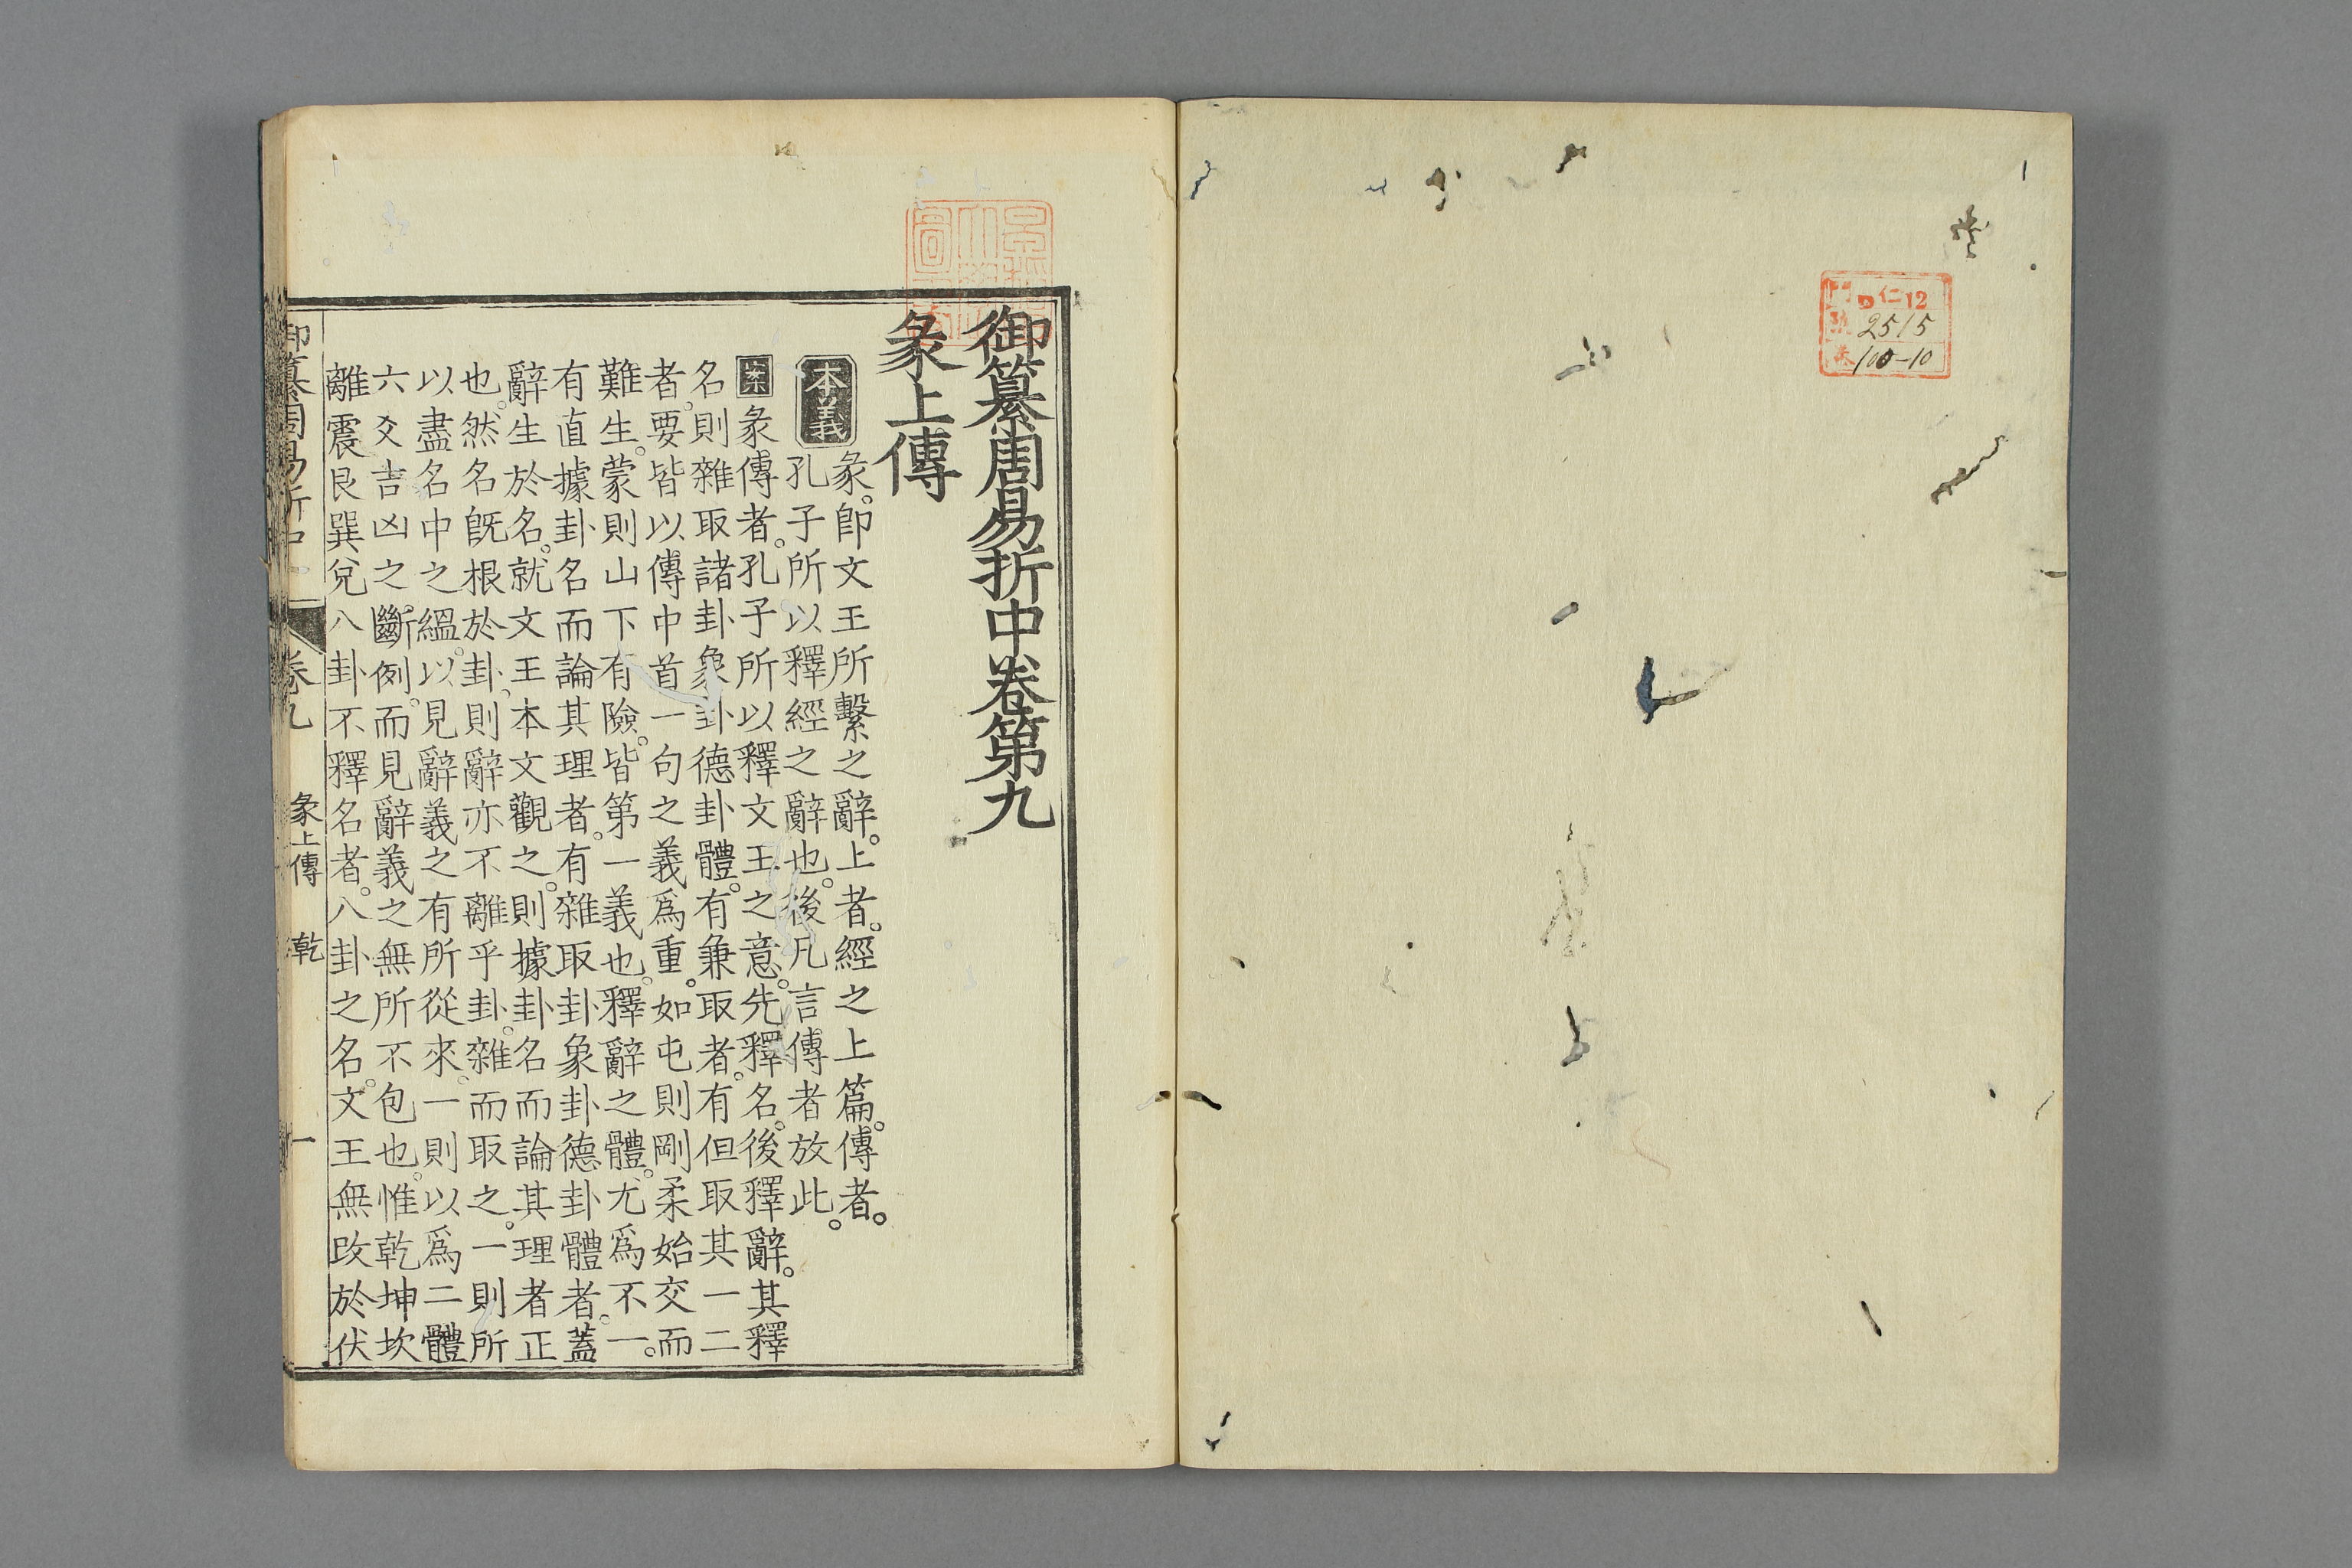 門 仁12
號 2515
巻 100-10
御纂周易折中卷第九
彖上傳
本義
彖。卽文王所繫之辭。上者。經之上篇。傳者。
孔子所以釋經之辭也。後凡言傳者放此。
案 彖傳者。孔子所以釋文王之意。先釋名。後釋辭。其釋
名則雜取諸卦象卦德卦體。有兼取者。有但取其一二
者。要皆以傳中首一句之義爲重。如屯則剛柔始交而
難生。蒙則山下有險。皆第一義也。釋辭之體。尤爲不一。
有直據卦名而論其理者。有雜取卦象卦德卦體者。蓋
辭生於名。就文王本文觀之。則據卦名而論其理者正
也。然名旣根於卦。則辭亦不離乎卦。雜而取之。一則所
以盡名中之縕。以見辭義之有所從來。一則以爲二體
六爻吉凶之斷例。而見辭義之無所不包也。惟乾坤坎
離震艮巽兌八卦不釋名者。八卦之名。文王無改於伏
御纂周易折中 卷九 彖上傳 乾 一